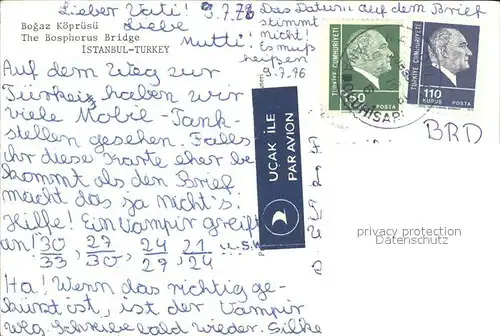 Boğaz Köprüsü
The Bosphorus Bridge
İSTANBUL-TURKEY
Lieber Vati! 9.7.76
Liebe
Mutti!
Das Datum auf dem Brief
stimmt
nicht!
Es muß
heißen
9.7.76
Auf dem Weg zur
Türkei haben wir
viele Mobil-Tank-
stellen gesehen. Falls
ihr diese Karte eher be
kommt als den Brief
macht das ja nicht's!
Hilfe! Ein Vampir greift
an! 30/33, 27/30, 24/27, 21/24 u.s.w.
Ha! Wenn das richtig ge-
kürzt ist, ist der Vampir
weg. Schreibe bald wieder. Silke
TÜRKİYE CUMHURİYETİ
50
POSTA
TÜRKİYE CUMHURİYETİ
110
KURUŞ POSTA
UÇAK İLE
PAR AVION
BRD
privacy protection
Datenschutz